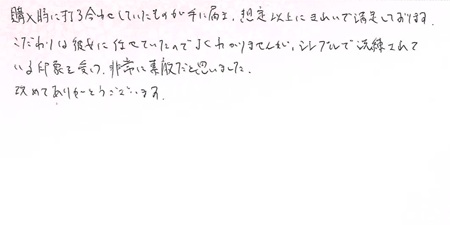 購入時に打ち合わせしていたものが手に届き、想定以上にきれいで満足しております。
こだわりは彼女に任せていたのでよくわかりませんが、シンプルで洗練されて
いる印象を受け、非常に素敵だと思いました。
改めてありがとうございます。